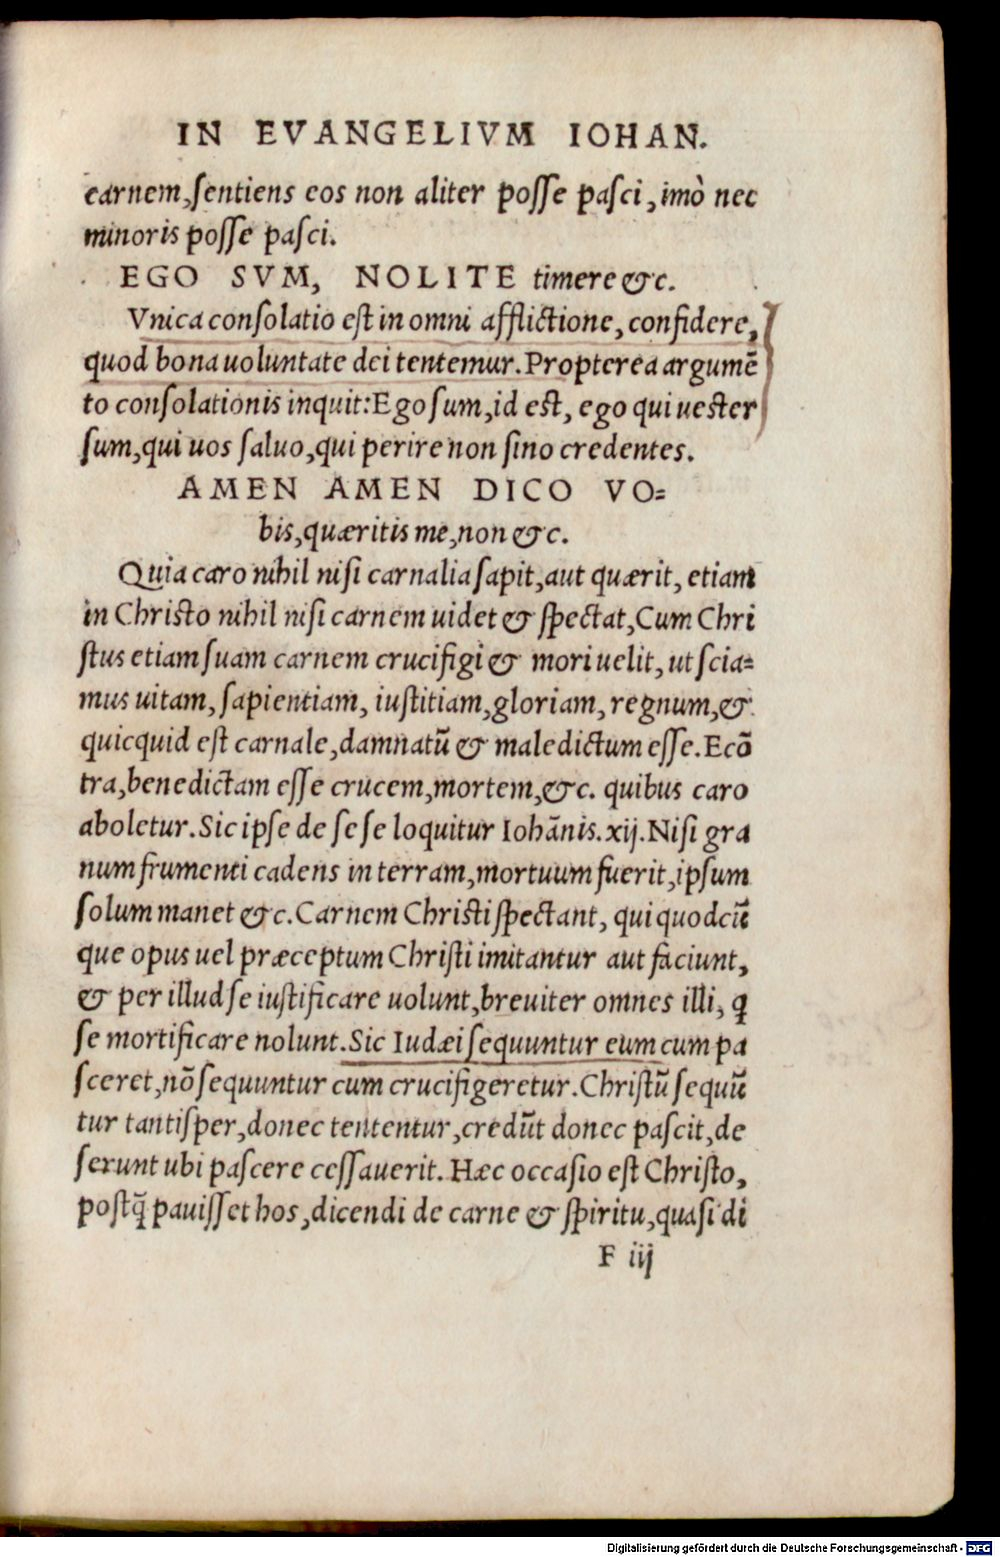 IN EVANGELIVM IOHAN.
carnem, ſentiens eos non aliter poſſe paſci, imò nec
minoris poſſe paſci.
EGO SVM, NOLITE timere &c.
Vnica conſolatio eſt in omni afflictione, confidere,
quod bona uoluntate dei tentemur. Propterea argumē
to conſolationis inquit: Ego ſum, id eſt, ego qui ueſter
ſum, qui uos ſaluo, qui perire non ſino credentes.
AMEN AMEN DICO VO=
bis, quæritis me, non &c.
Quia caro nihil niſi carnalia ſapit, aut quærit, etiam
in Chriſto nihil niſi carnem uidet & ſpectat, Cum Chri
ſtus etiam ſuam carnem crucifigi & mori uelit, ut ſcia=
mus uitam, ſapientiam, iuſtitiam, gloriam, regnum, &
quicquid eſt carnale, damnatū & maledictum eſſe. Ecō
tra, benedictam eſſe crucem, mortem, &c. quibus caro
aboletur. Sic ipſe de ſe ſe loquitur Iohānis. xij. Niſi gra
num frumenti cadens in terram, mortuum fuerit, ipſum
ſolum manet &c. Carnem Chriſti ſpectant, qui quodcū
que opus uel præceptum Chriſti imitantur aut faciunt,
& per illud ſe iuſtificare uolunt, breuiter omnes illi, ꝗ
ſe mortificare nolunt. Sic Iudæi ſequuntur eum cum pa
ſceret, nō ſequuntur cum crucifigeretur. Chriſtū ſequū
tur tantiſper, donec tententur, credūt donec paſcit, de
ſerunt ubi paſcere ceſſauerit. Hæc occaſio eſt Chriſto,
poſtq̄ pauiſſet hos, dicendi de carne & ſpiritu, quaſi di
F iij
Digitalisierung gefördert durch die Deutsche Forschungsgemeinschaft - DFG